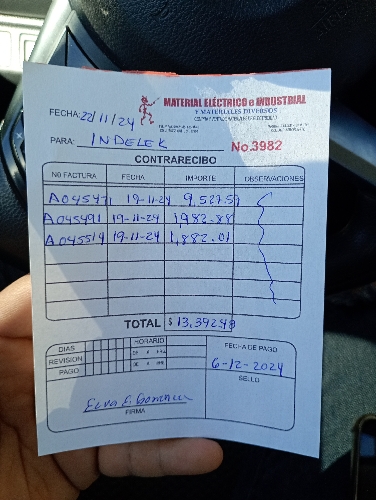 MATERIAL ELÉCTRICO e INDUSTRIAL
Y MATERIALES DIVERSOS
FECHA: 22/11/24
PARA: INDELEK
No.3982
CONTRARECIBO
No FACTURA FECHA IMPORTE OBSERVACIONES
A045471 19-11-24 9,527.57
A045491 19-11-24 1,982.88
A045514 19-11-24 1,882.01
TOTAL $ 13,392.48
DIAS HORARIO FECHA DE PAGO
REVISION DE A HRA
PAGO DE A 6-12-2024
SELLO
FIRMA